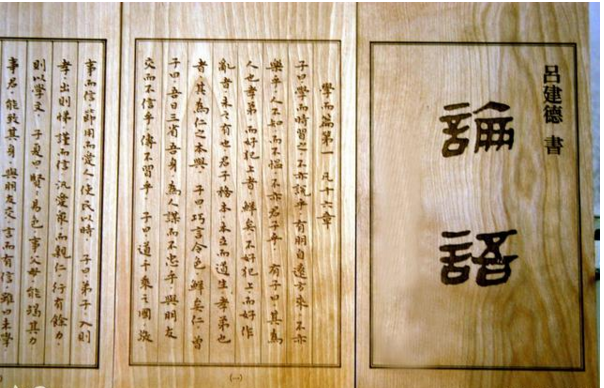 呂建德 書
論語
學而篇第一 凡十六章
子曰學而時習之不亦說乎 有朋自遠方來 不亦
樂乎 人不知 而不慍 不亦君子乎 有子曰 其爲
人也孝弟 而好犯上者 鮮矣不好犯上 而好作
亂者 未之有也 君子務本 本立而道生 孝弟也
者 其爲仁之本與 子曰 巧言令色 鮮矣仁 曾
子曰 吾日三省吾身 爲人謀而不忠乎 與朋友
交而不信乎 傳不習乎 子曰 道千乘之國 敬
(一)
事而信 節用而愛人 使民以時 子曰 弟子 入則
孝 出則悌 謹而信 汎愛眾 而親仁 行有餘力
則以學文 子夏曰 賢賢易色 事父母 能竭其力
事君 能致其身 與朋友交 言而有信 雖曰未學